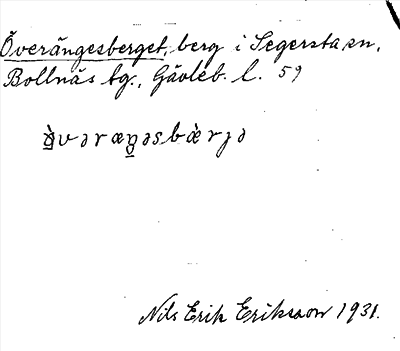 Överängesberget, berg i Segersta sn,
Bollnäs tg., Gävleb. l. 59
ȯ̤̀vəræŋəsbæ̀rjə
Nils Erik Eriksson 1931.